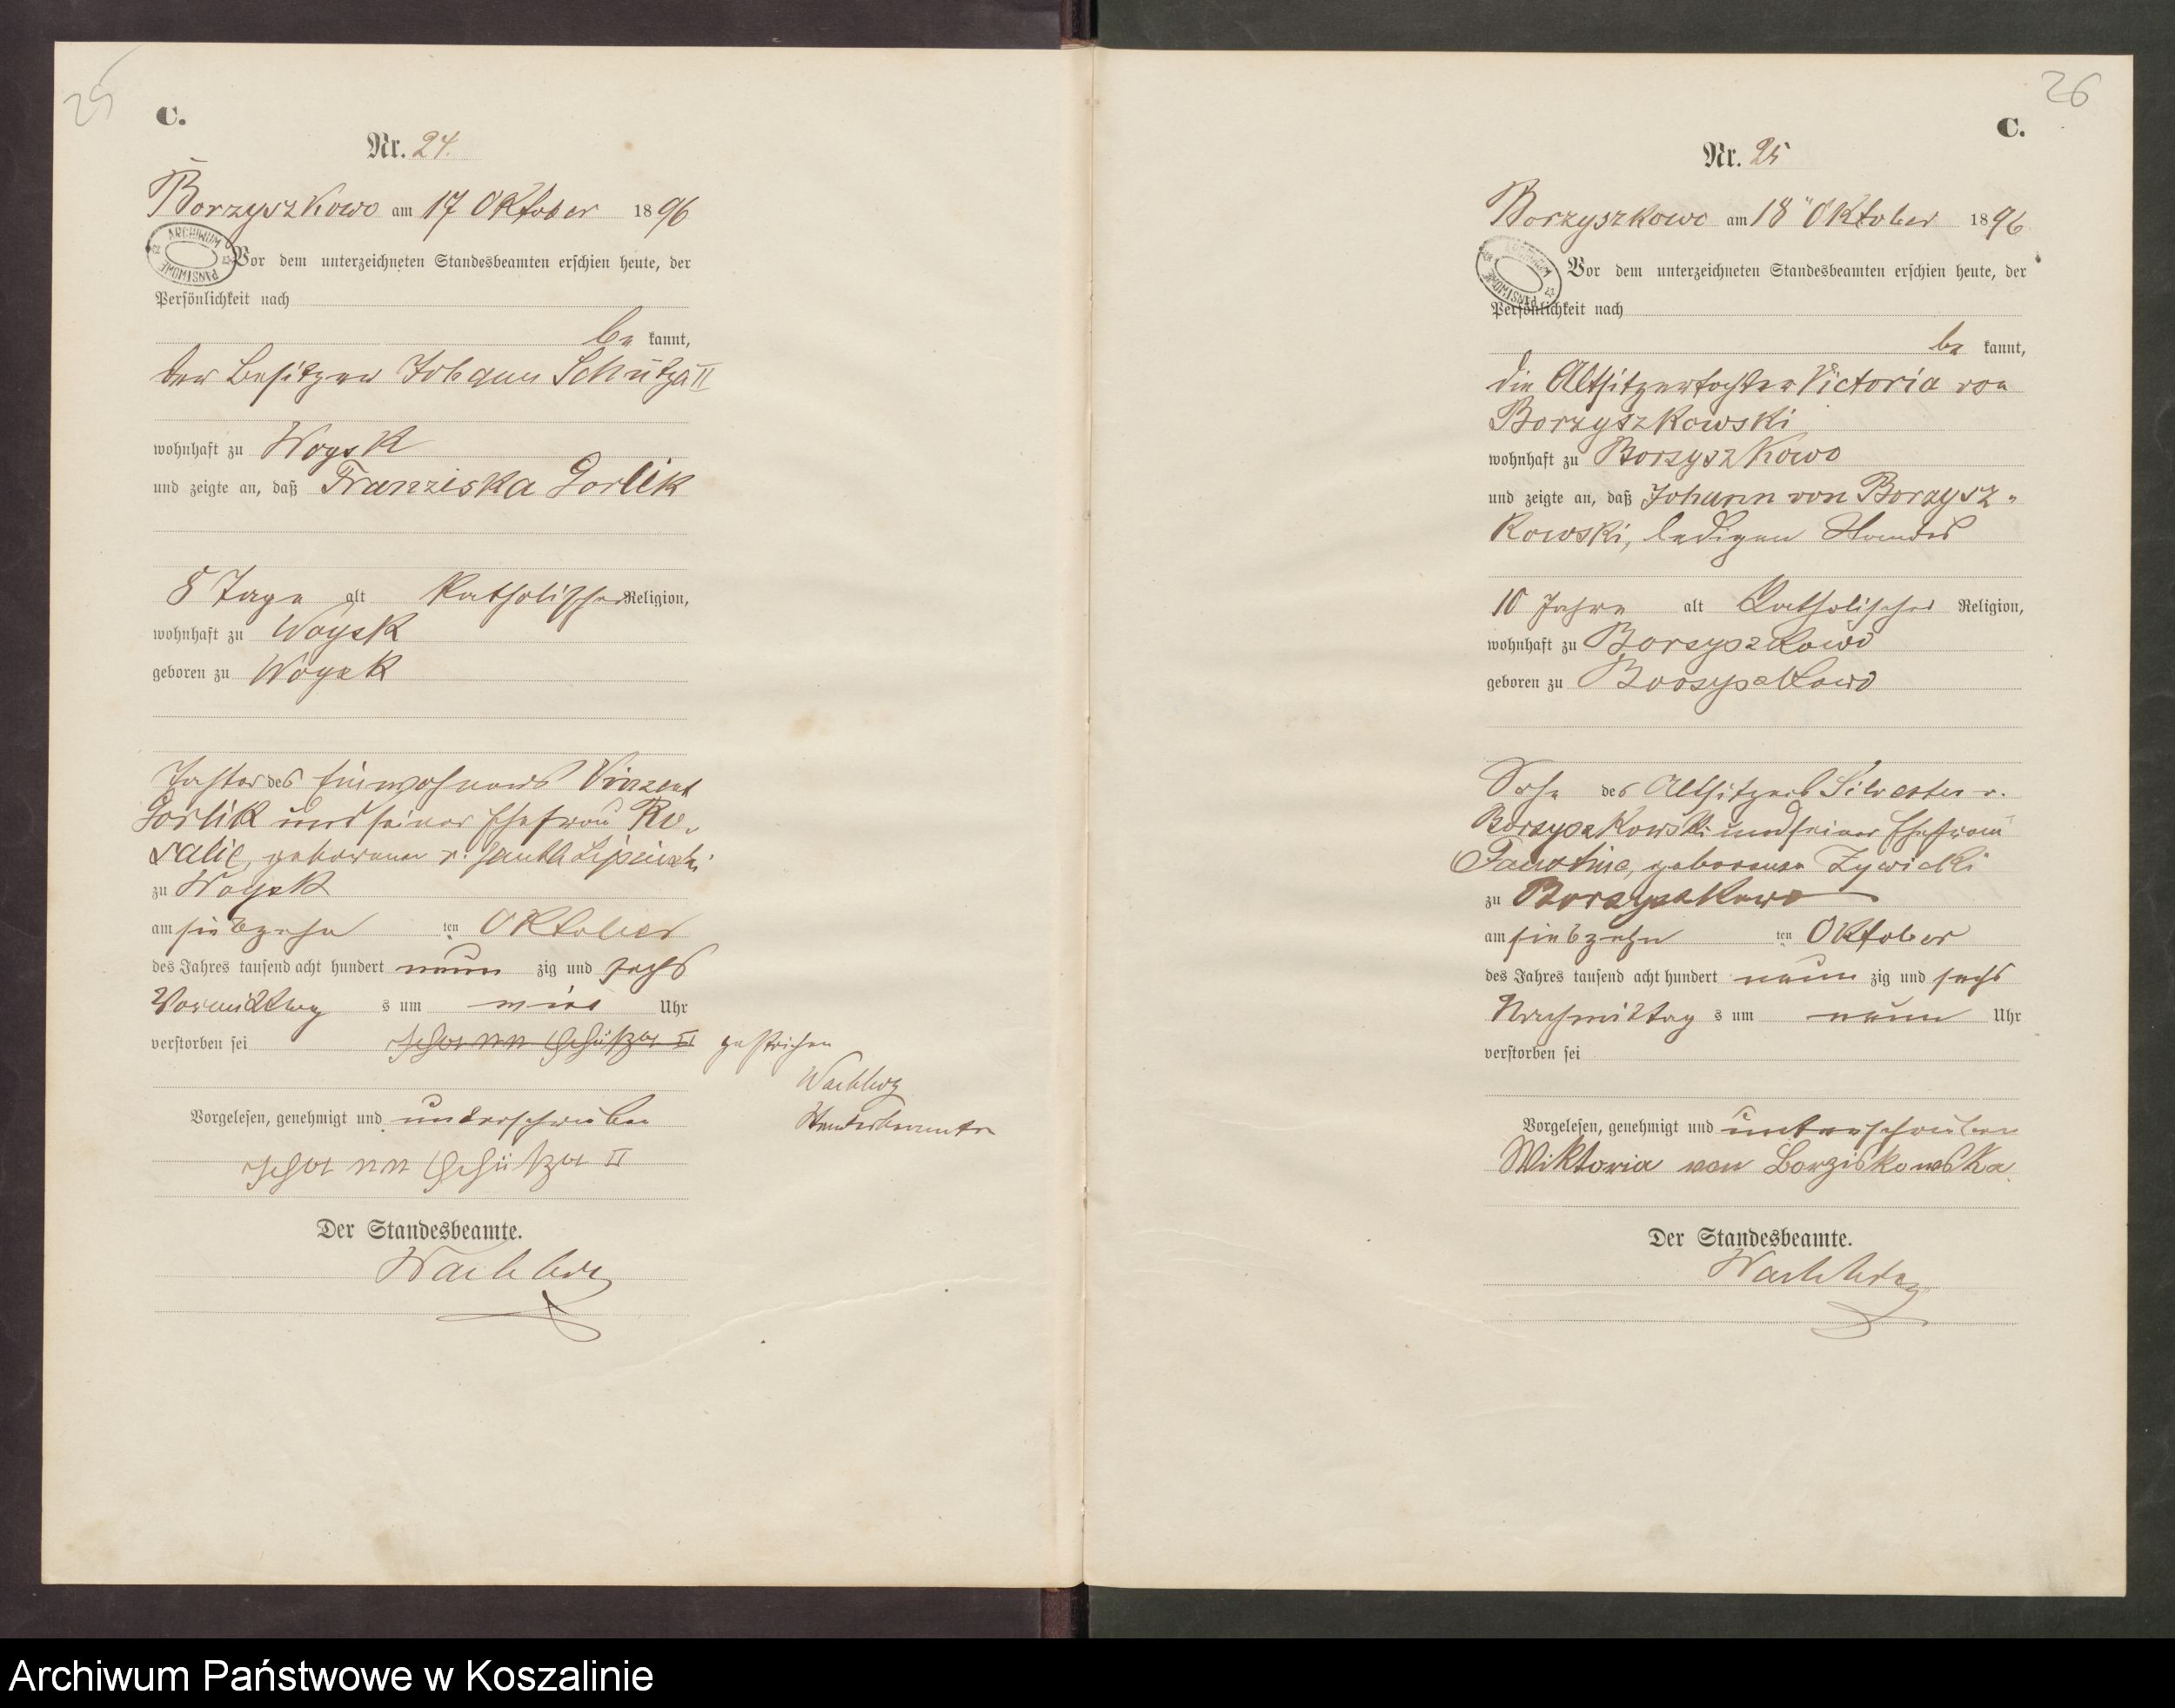 25
C.
Nr. 24.
Borzyszkowo am 17 Oktober 1896
ARCHIWUM PAŃSTWOWE
Vor dem unterzeichneten Standesbeamten erschien heute, der
Persönlichkeit nach
be kannt,
der Besitzer Johann Schütza II
wohnhaft zu Woysk
und zeigte an, daß Franziska Gorlik
8 Tage alt katholischer Religion,
wohnhaft zu Woysk
geboren zu Woysk
Tochter des Einwohners Vinzent
Gorlik und seiner Ehefrau Ro-
salie, geborenen v. Lipinski
zu Woysk
am siebzehn ten Oktober
des Jahres tausend acht hundert neun zig und sechs
Vormittag s um vier Uhr
verstorben sei Johann Schütza II gestrichen
Standesbeamte
Vorgelesen, genehmigt und unterschrieben
Johann Schütza II
Der Standesbeamte.
26
C.
Nr. 25
Borzyszkowo am 18 Oktober 1896
ARCHIWUM PAŃSTWOWE
Vor dem unterzeichneten Standesbeamten erschien heute, der
Persönlichkeit nach
be kannt,
die Altsitzertochter Victoria von
Borzyszkowski
wohnhaft zu Borzyszkowo
und zeigte an, daß Johann von Borzysz-
kowski, ledigen Standes
10 Jahre alt Katholischer Religion,
wohnhaft zu Borzyszkowo
geboren zu Borzyszkowo
Sohn des Altsitzers Silvester v.
Borzyszkowski und seiner Ehefrau
Faustine, geborenen Zywicki
zu Borzyszkowo
am siebzehn ten Oktober
des Jahres tausend acht hundert neun zig und sechs
Nachmittag s um neun Uhr
verstorben sei
Vorgelesen, genehmigt und unterschrieben
Wiktoria von Borziskowska
Der Standesbeamte.
Archiwum Państwowe w Koszalinie